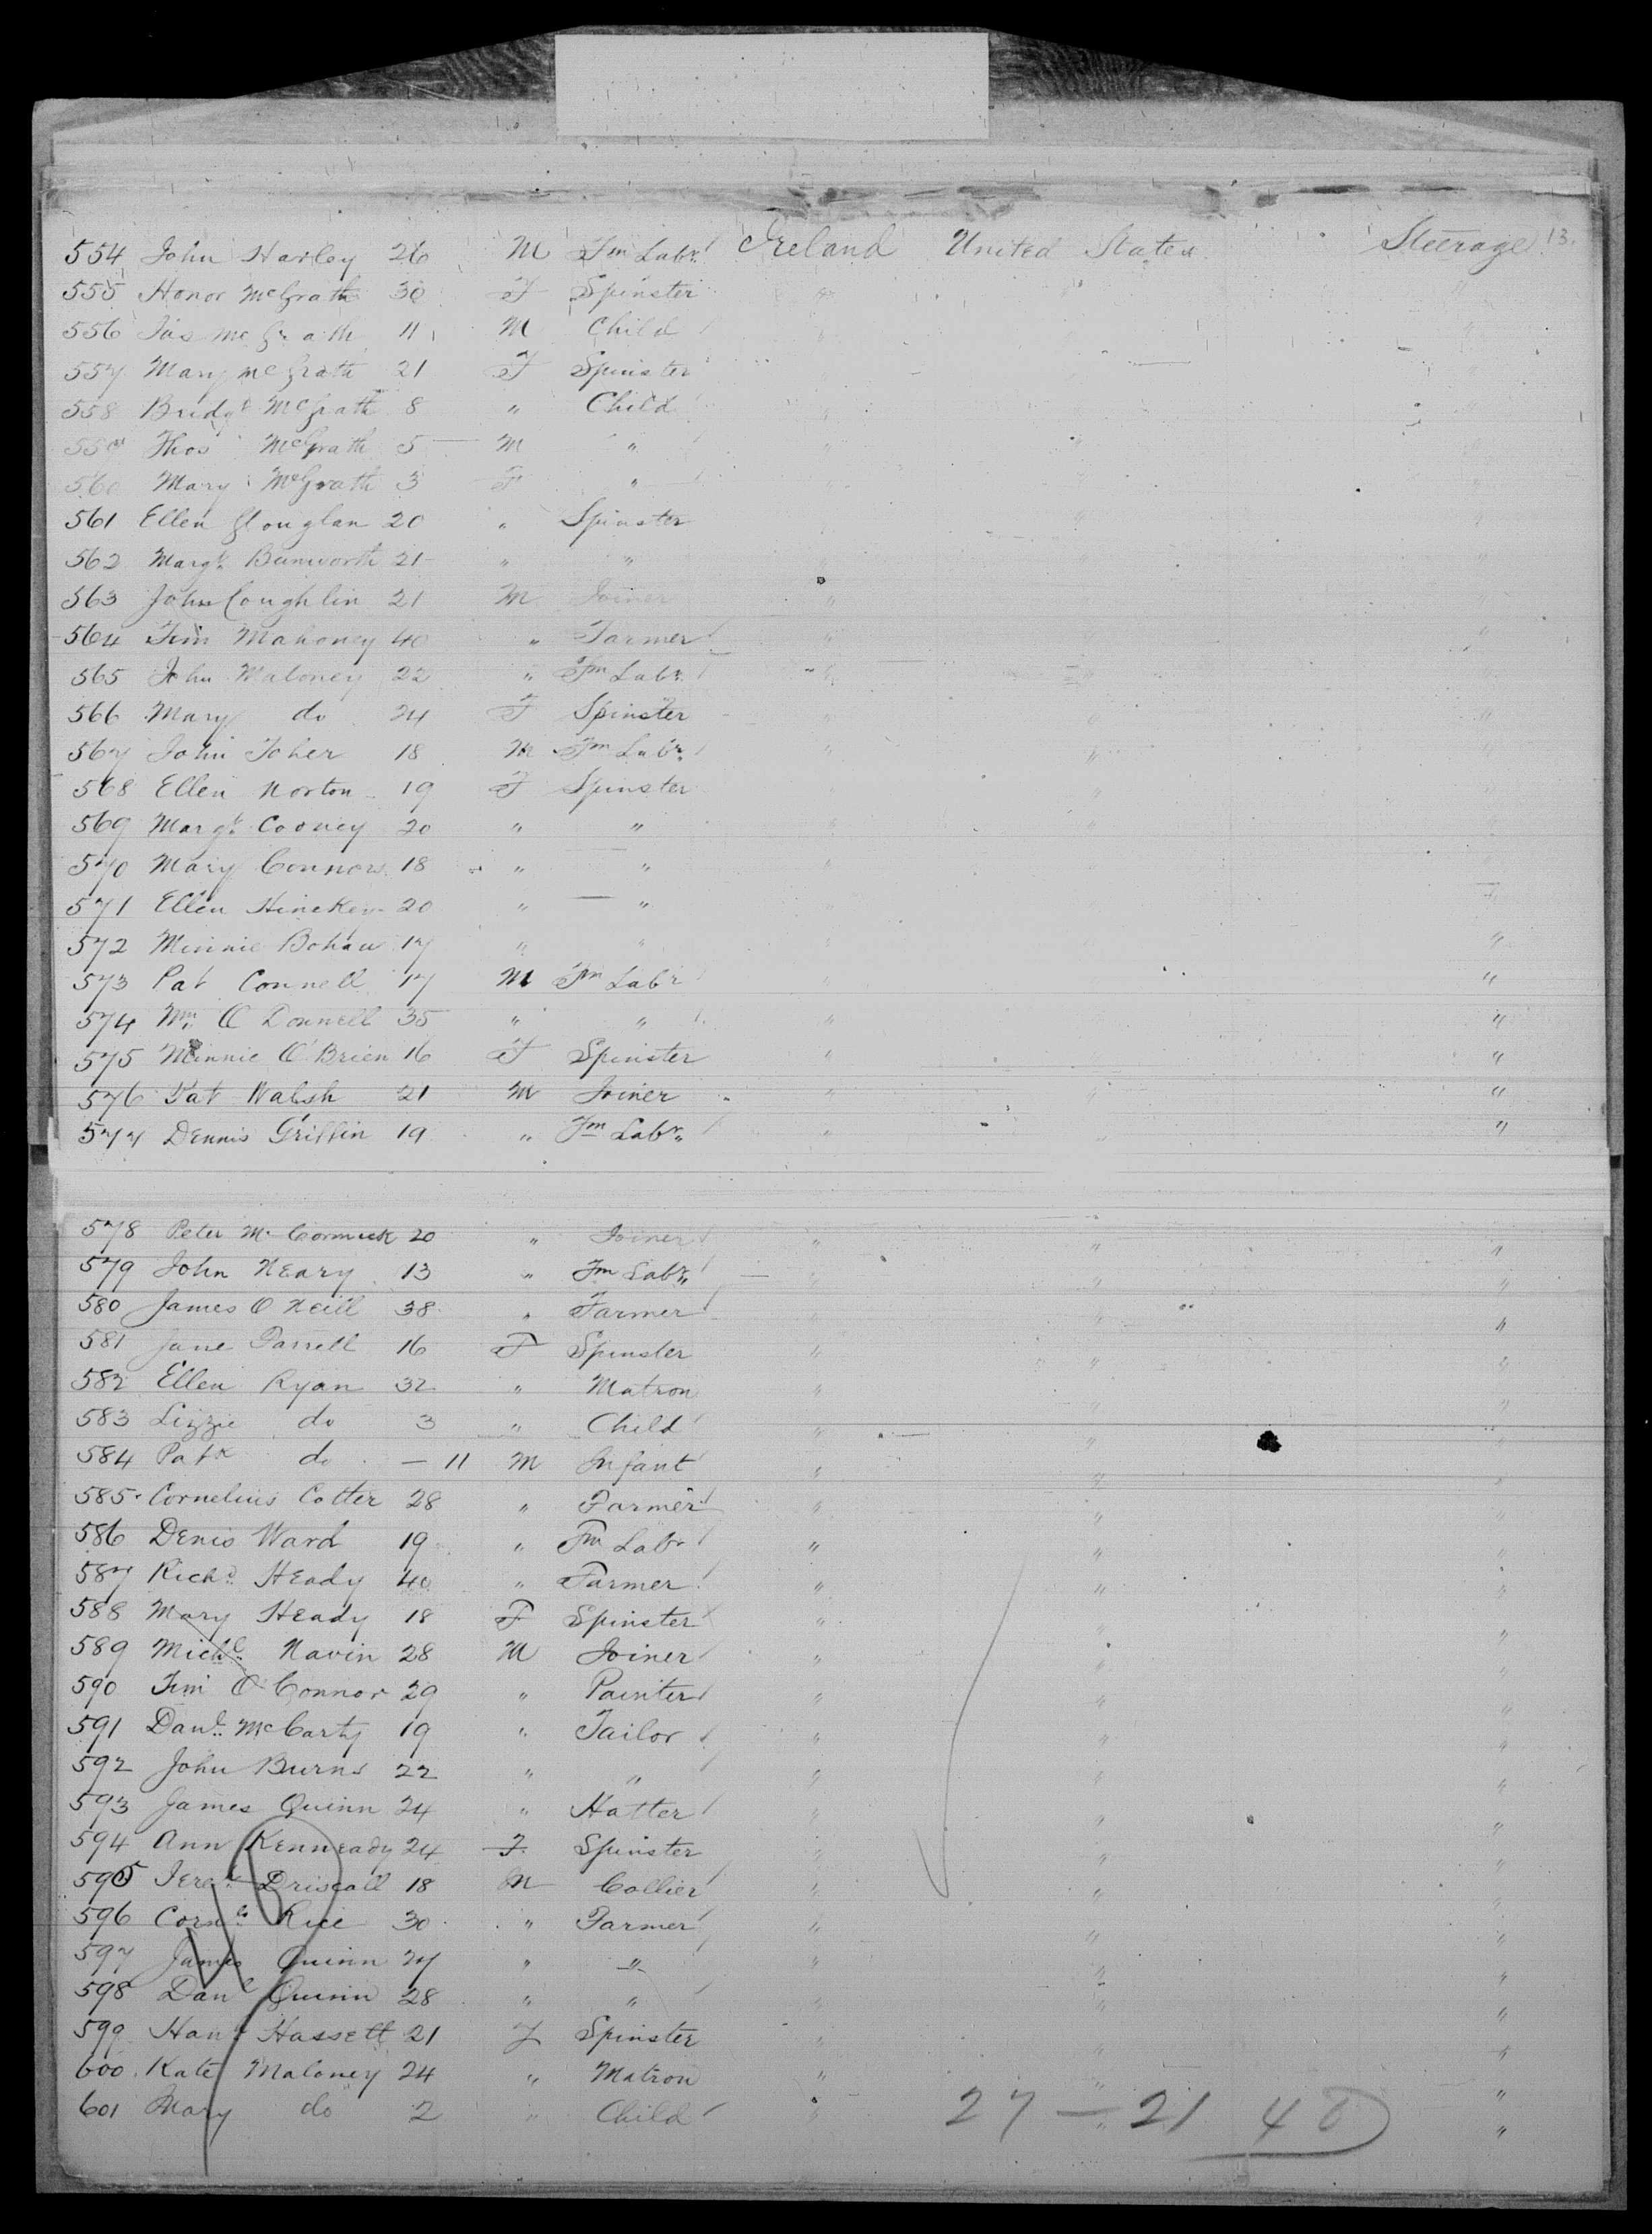 554 John Harley 26 M Fm Labr. Ireland United States Steerage 13.
555 Honor McGrath 30 F Spinster "
556 Jas McGrath 11 M Child " "
557 Mary McGrath 21 F Spinster
558 Bridgt McGrath 8 " Child " "
559 Thos McGrath 5 M " " " "
560 Mary McGrath 3 F " " "
561 Ellen 20 " Spinster " " "
562 Margt. Bunworth 21 " " " " "
563 John Coughlin 21 M Joiner " "
564 Tim Mahoney 40 " Farmer " "
565 John Maloney 22 " Fm Labr. " " "
566 Mary do 24 F Spinster " " "
567 John Toher 18 M Fm Labr. " " "
568 Ellen Norton 19 F Spinster " " "
569 Margt. Cooney 20 " " " " "
570 Mary Connors 18 " " " " "
571 Ellen 20 " " " " "
572 Minnie Bohan 17 " " " "
573 Pat Connell 17 M Fm Labr " "
574 Wm. O Donnell 35 " " " "
575 Minnie O'Brien 16 F Spinster " "
576 Pat Walsh 21 M Joiner " " "
577 Dennis Griffin 19 " Fm Labr. " "
578 Peter Mc Cormick 20 " Joiner " " "
579 John Neary 13 " Fm Labr. " " "
580 James O Neill 38 " Farmer " "
581 Jane Farrell 16 F Spinster " " "
582 Ellen Ryan 32 " Matron " " "
583 Lizzie do 3 " Child " " "
584 Patk do — 11 M Infant " " "
585 Cornelius Cotter 28 " Farmer " " "
586 Denis Ward 19 " Fm Labr " " "
587 Richd. Heady 40 " Farmer " " "
588 Mary Heady 18 F Spinster " " "
589 Michl. Navin 28 M Joiner " " "
590 Tim O'Connor 29 " Painter " " "
591 Danl. McCarty 19 " Tailor " " "
592 John Burns 22 " " " " "
593 James Quinn 24 " Hatter " " "
594 Ann Kenneady 24 F Spinster " " "
595 Jereh. Driscoll 18 M Collier " " "
596 Corns. Rice 30 " Farmer " " "
597 James Quinn 27 " " " " "
598 Danl Quinn 28 " " " " "
599 Hant Hassett 21 F Spinster " " "
600 Kate Maloney 24 " Matron " " "
601 Mary do 2 " Child " " "
27 — 21 40